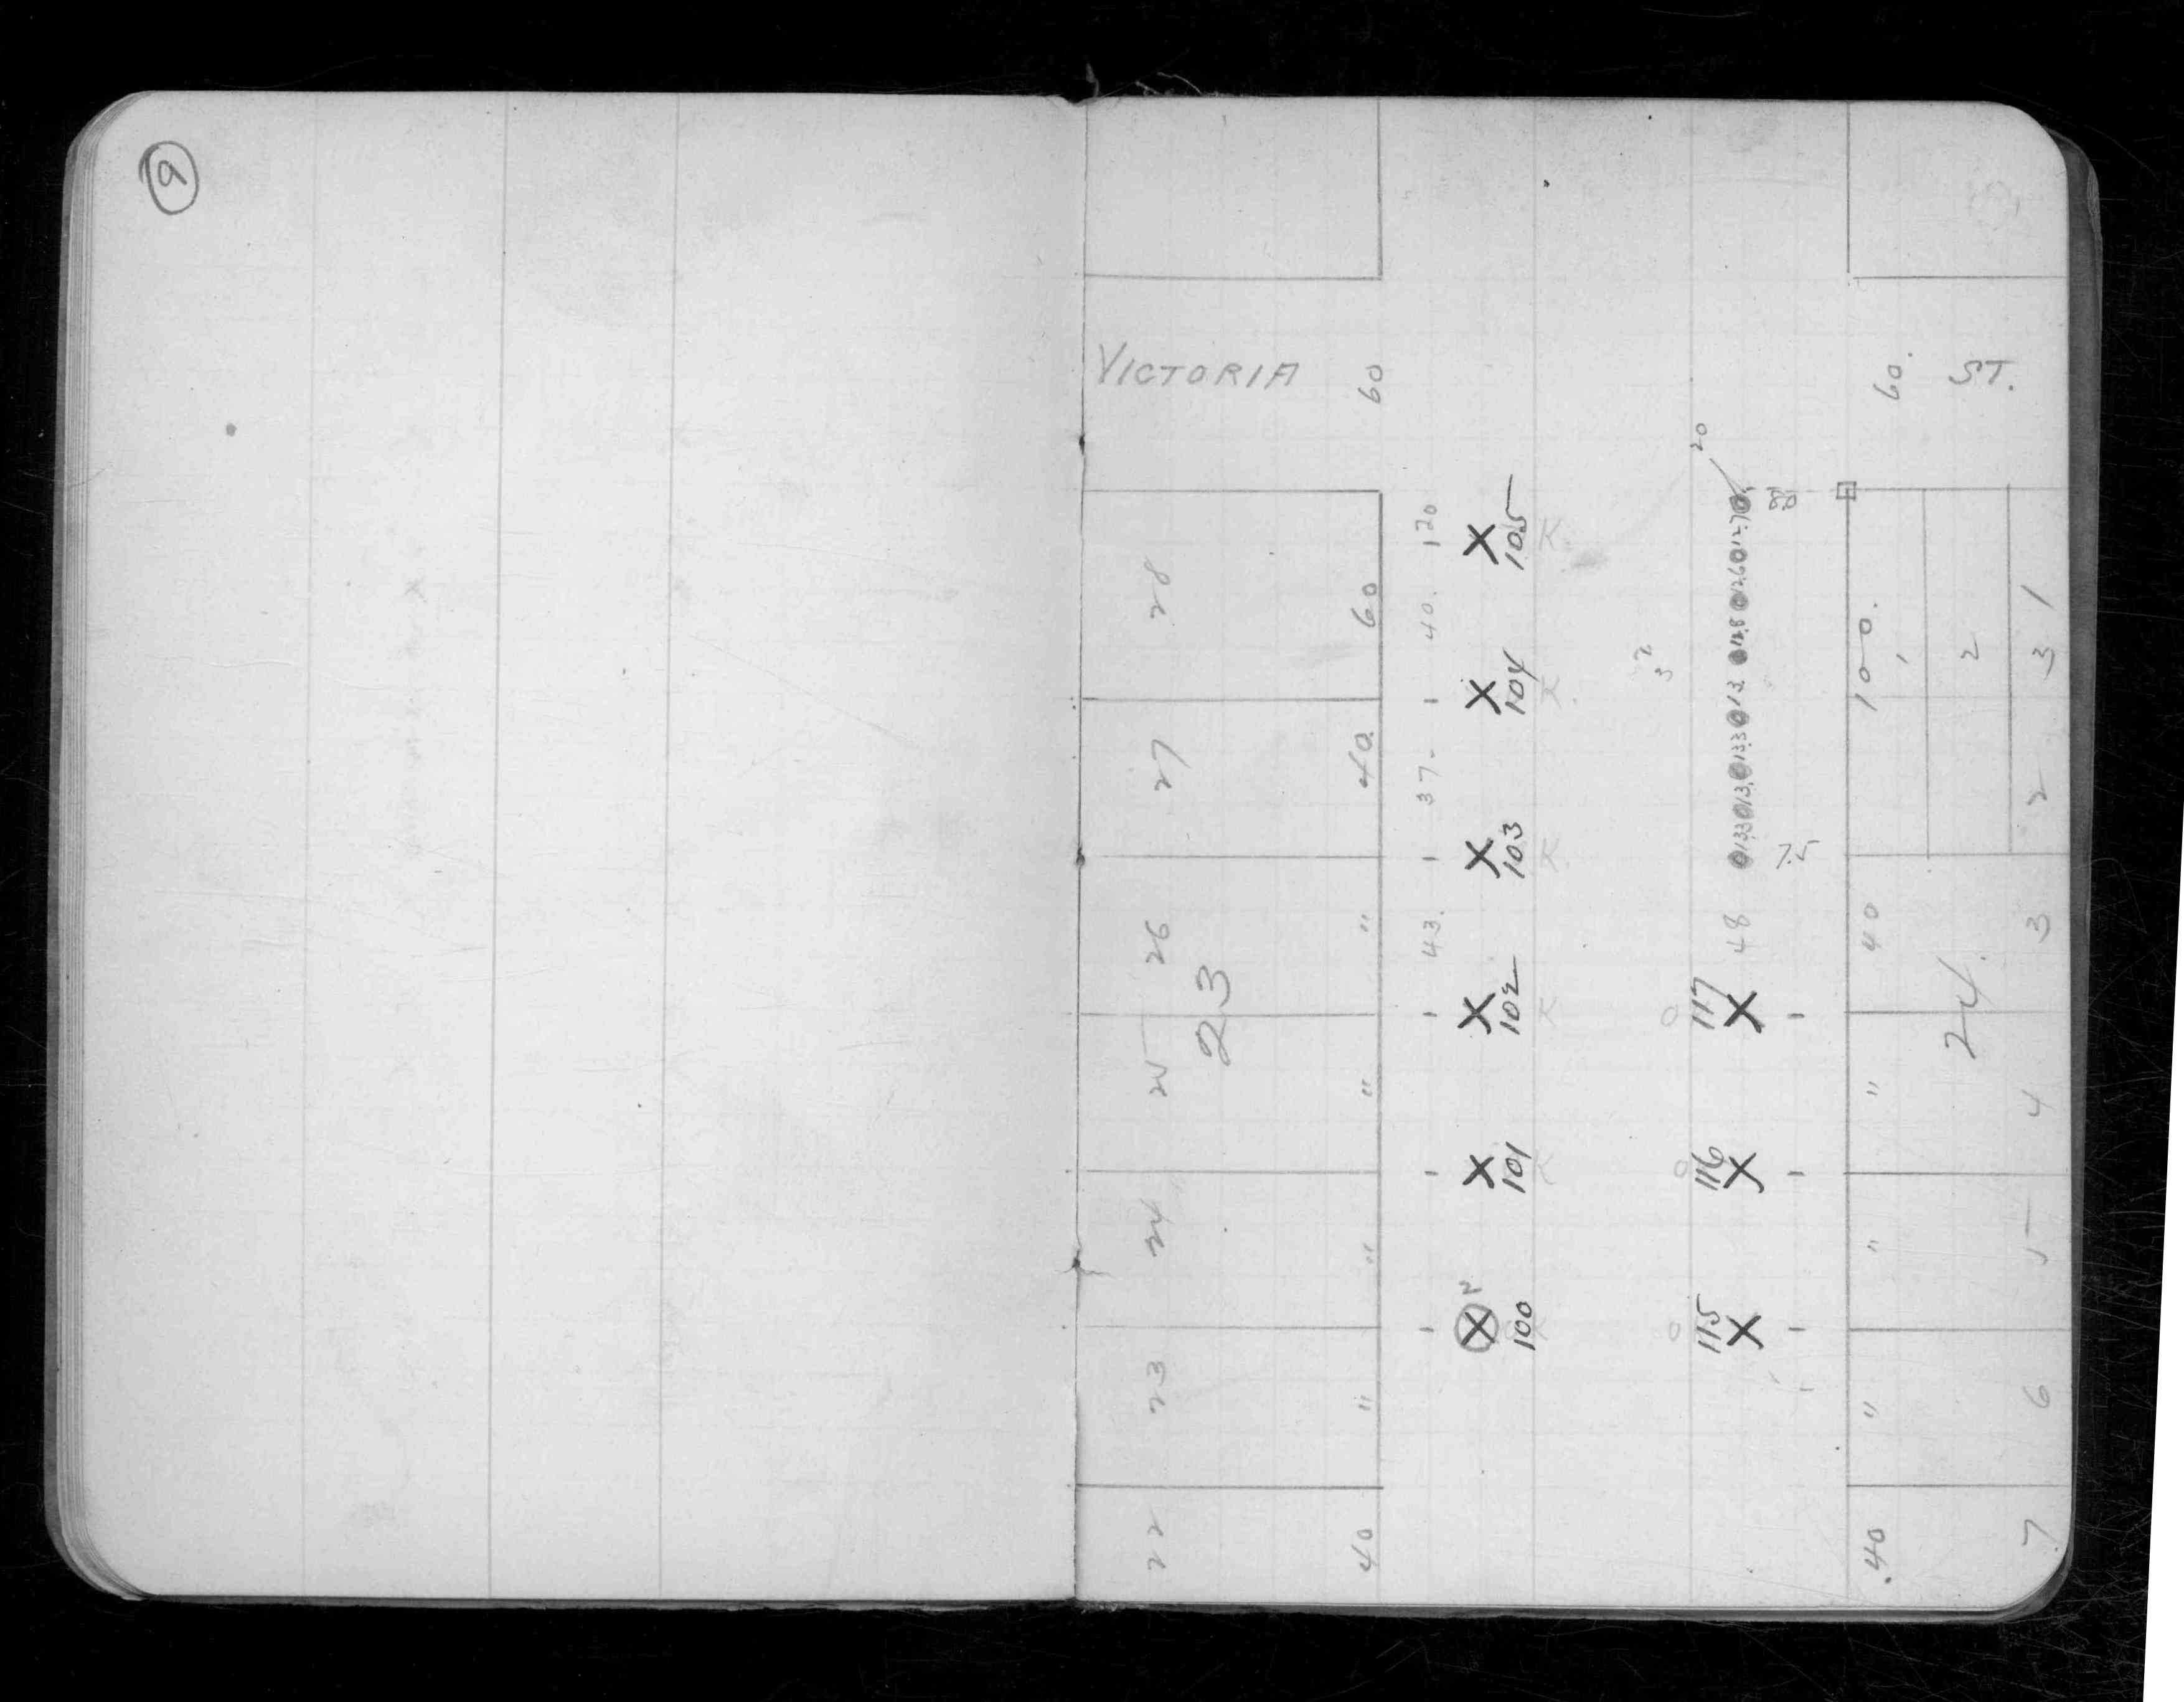 9
VICTORIA 60 60. ST.
20
28 60 120 40. X 105 K.
X 104 K.
32
100. 1 2 3 1
27 40. 37. X 103 K.
7.5
2
26 " 43. X 102 K 48 40 3
23
O 117 X
24.
25 " X 101 K O 116 X " 4
24 " " 5
X 100 K O 115 X
23 " " 6
22 40 .40 7.